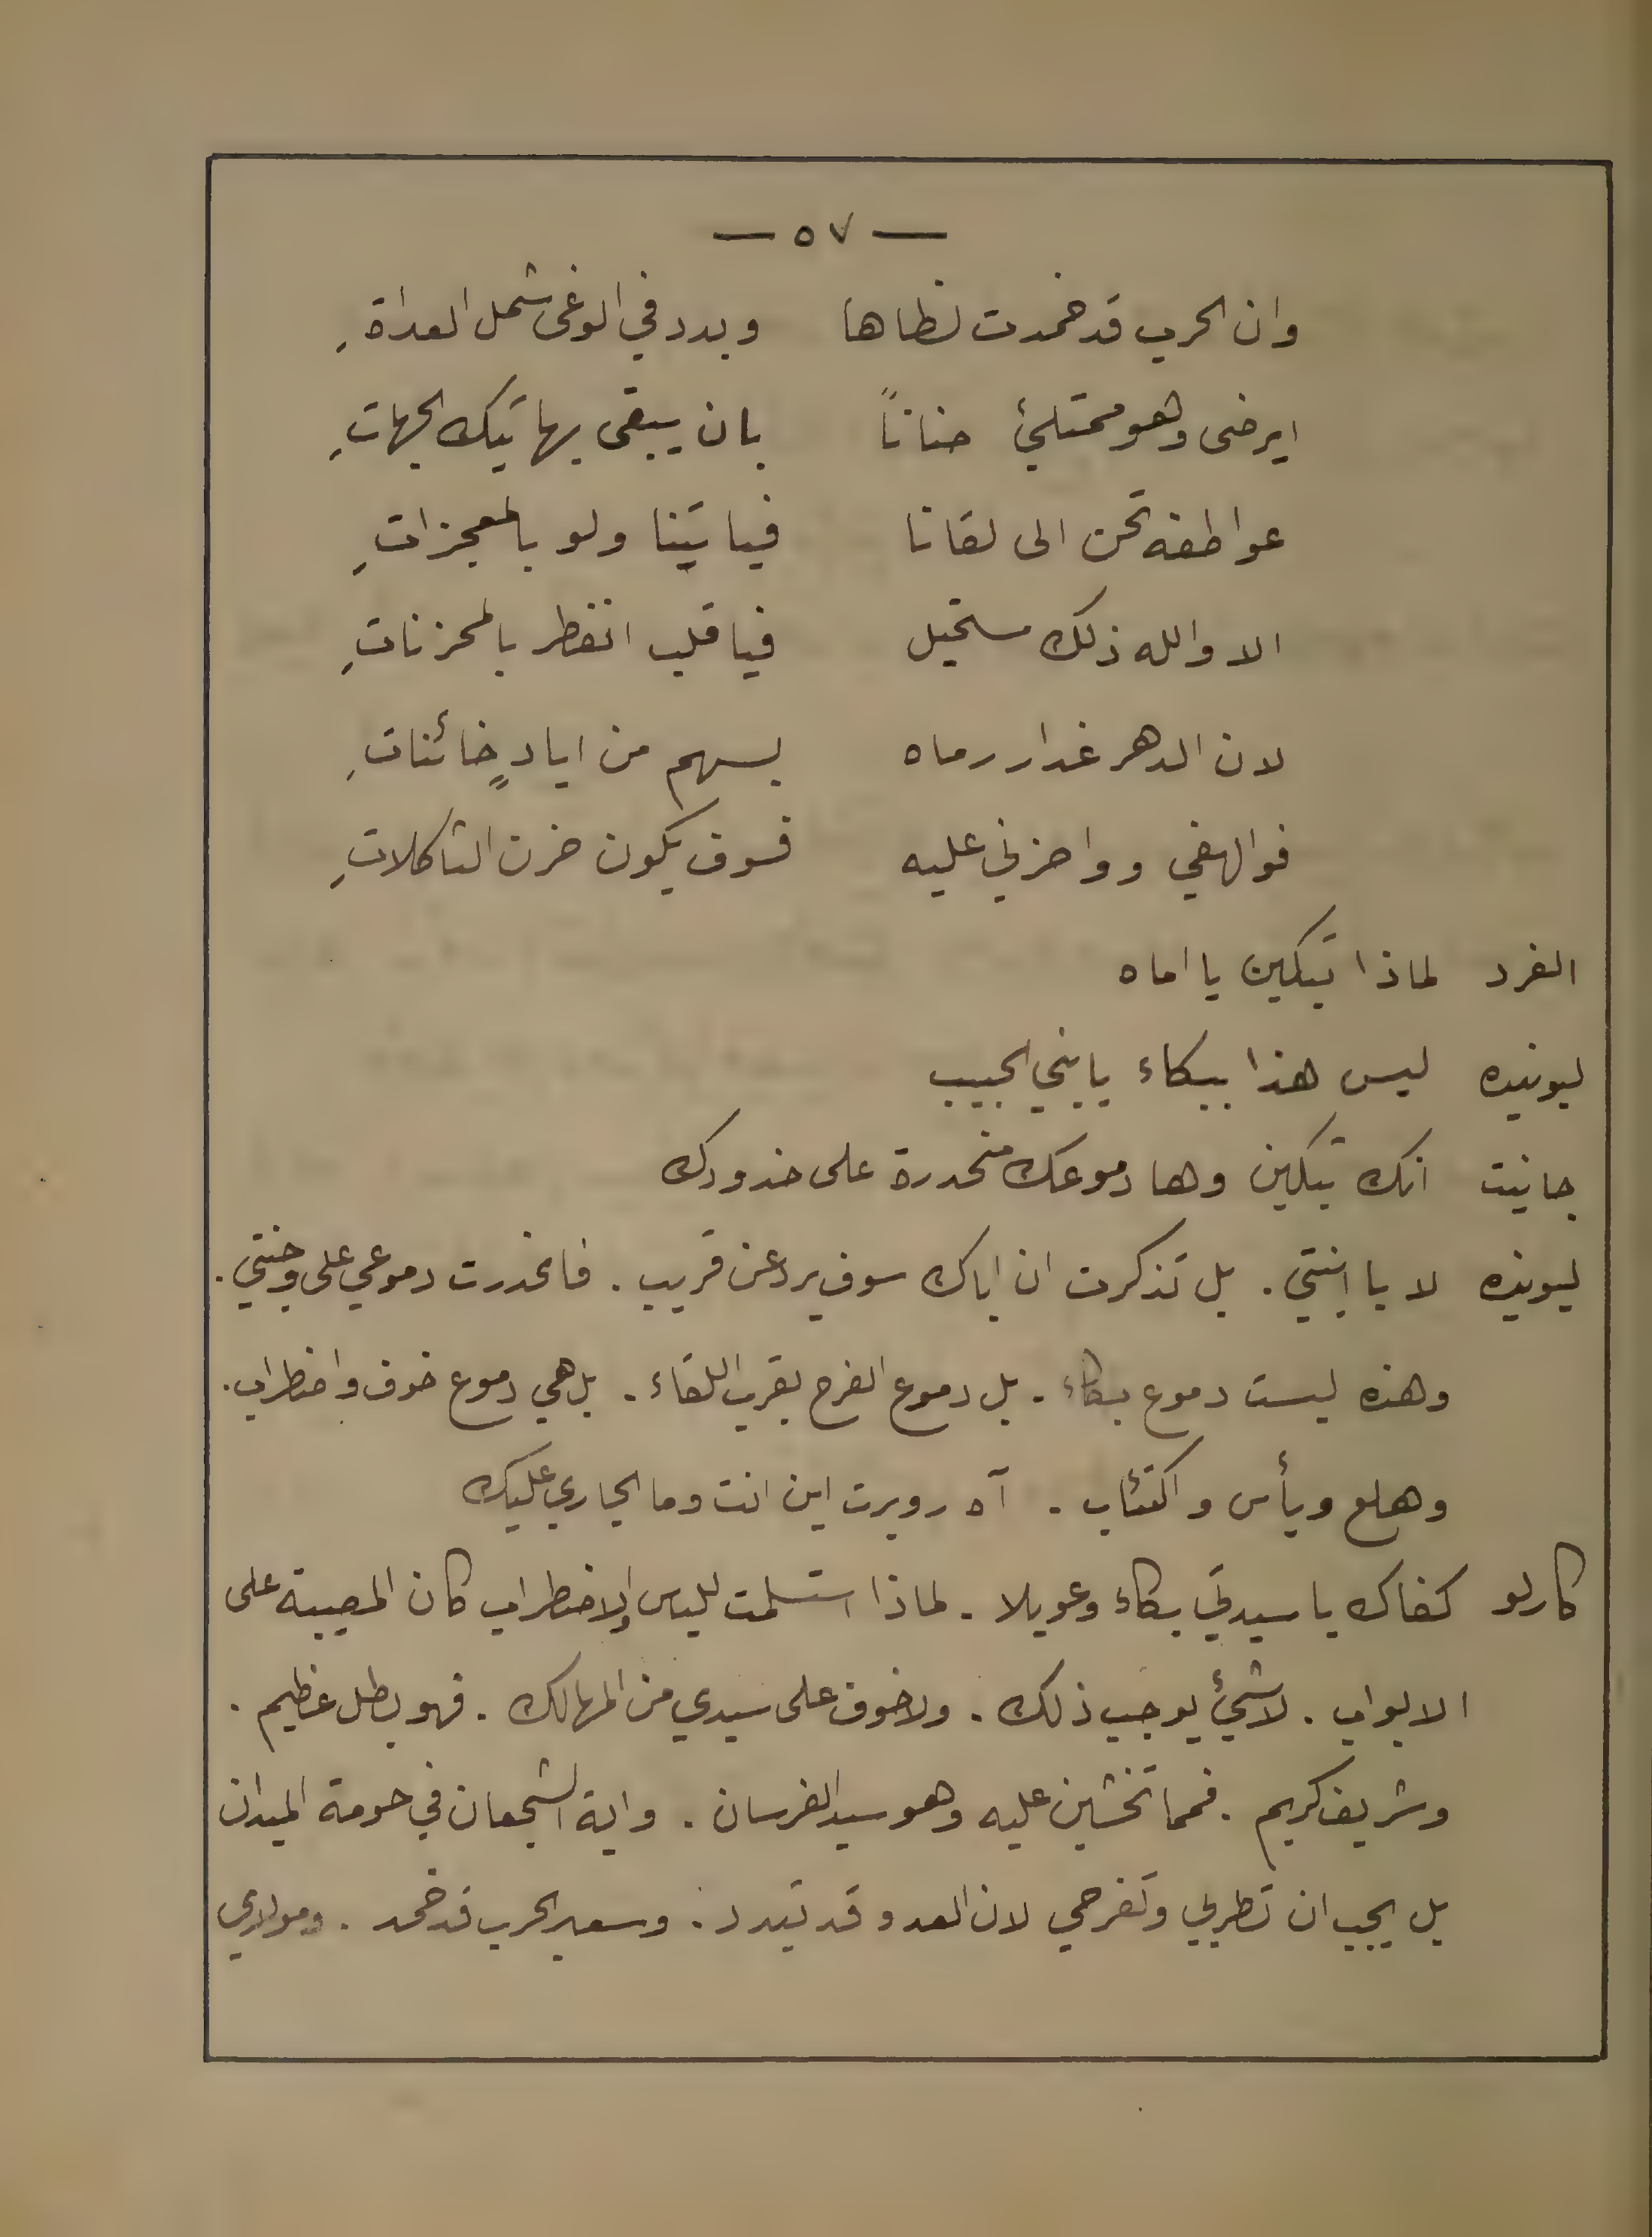 — ٥٧ —
وان الحرب قد خمدت لظاها وبدد في الوغى شمل العداةِ
ايرضى وهو ممتلئ حناناً بان يبقى بهاتيك الجهاتِ
عواطفه تحن الى لقانا فياتينا ولو بالمعجزاتِ
الا والله ذلك مستحيل فيا قلب انفطر بالمحزناتِ
لان الدهر غدار رماه بسهم من ايادٍ خائناتِ
فوالهفي وواحزني عليه فسوف يكون حزن الثاكلاتِ
الفرد لماذا تبكين يا اماه
ليونيده ليس هذا ببكاء يا بني الحبيب
جانيت انك تبكين وها دموعك منحدرة على خدودك
ليونيده لا يا ابنتي . بل تذكرت ان اباك سوف يرد عن قريب . فانحدرت دموعي على وجنتي .
وهذه ليست دموع بكاء . بل دموع الفرح بقرب اللقاء . بل هي دموع خوف واضطراب .
وهلع ويأس واكتئاب . آه روبرت اين انت وما الجاري عليك
كارلو كفاك يا سيدتي بكاء وعويلا . لماذا استسلمت لليأس والاضطراب كان المصيبة على
الابواب . لا شيئ يوجب ذلك . ولا خوف على سيدي من المهالك . فهو بطل عظيم .
وشريف كريم . فمما تخشين عليه وهو سيد الفرسان . واية الشجعان في حومة الميدان
بل يجب ان تطربي وتفرحي لان العدو قد تبدد . وسعير الحرب قد خمد . ومولاي